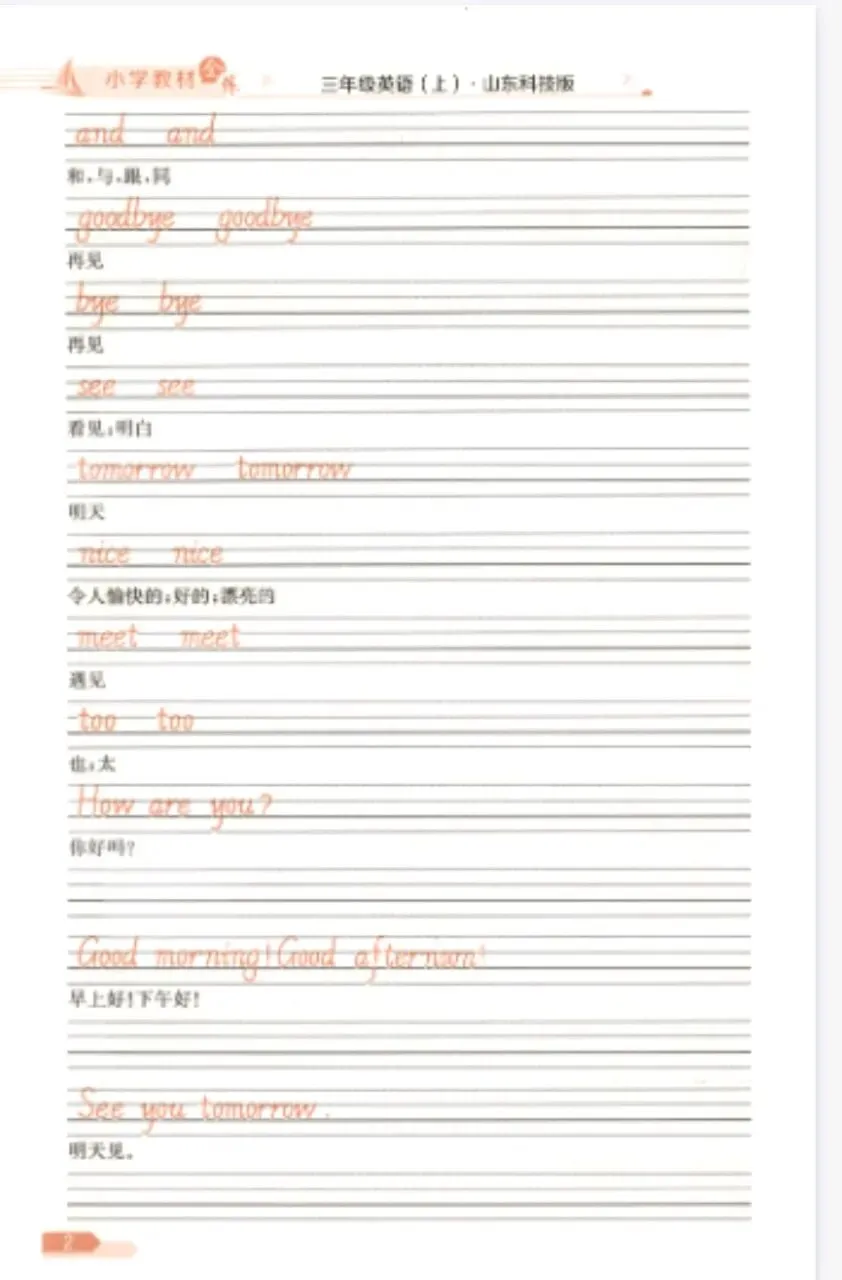 小学教材全练 三年级英语(上)·山东科技版
and and
和,与,跟,同
goodbye goodbye
再见
bye bye
再见
see see
看见;明白
tomorrow tomorrow
明天
nice nice
令人愉快的;好的;漂亮的
meet meet
遇见
too too
也;太
How are you?
你好吗?
Good morning! Good afternoon!
早上好!下午好!
See you tomorrow.
明天见。
2